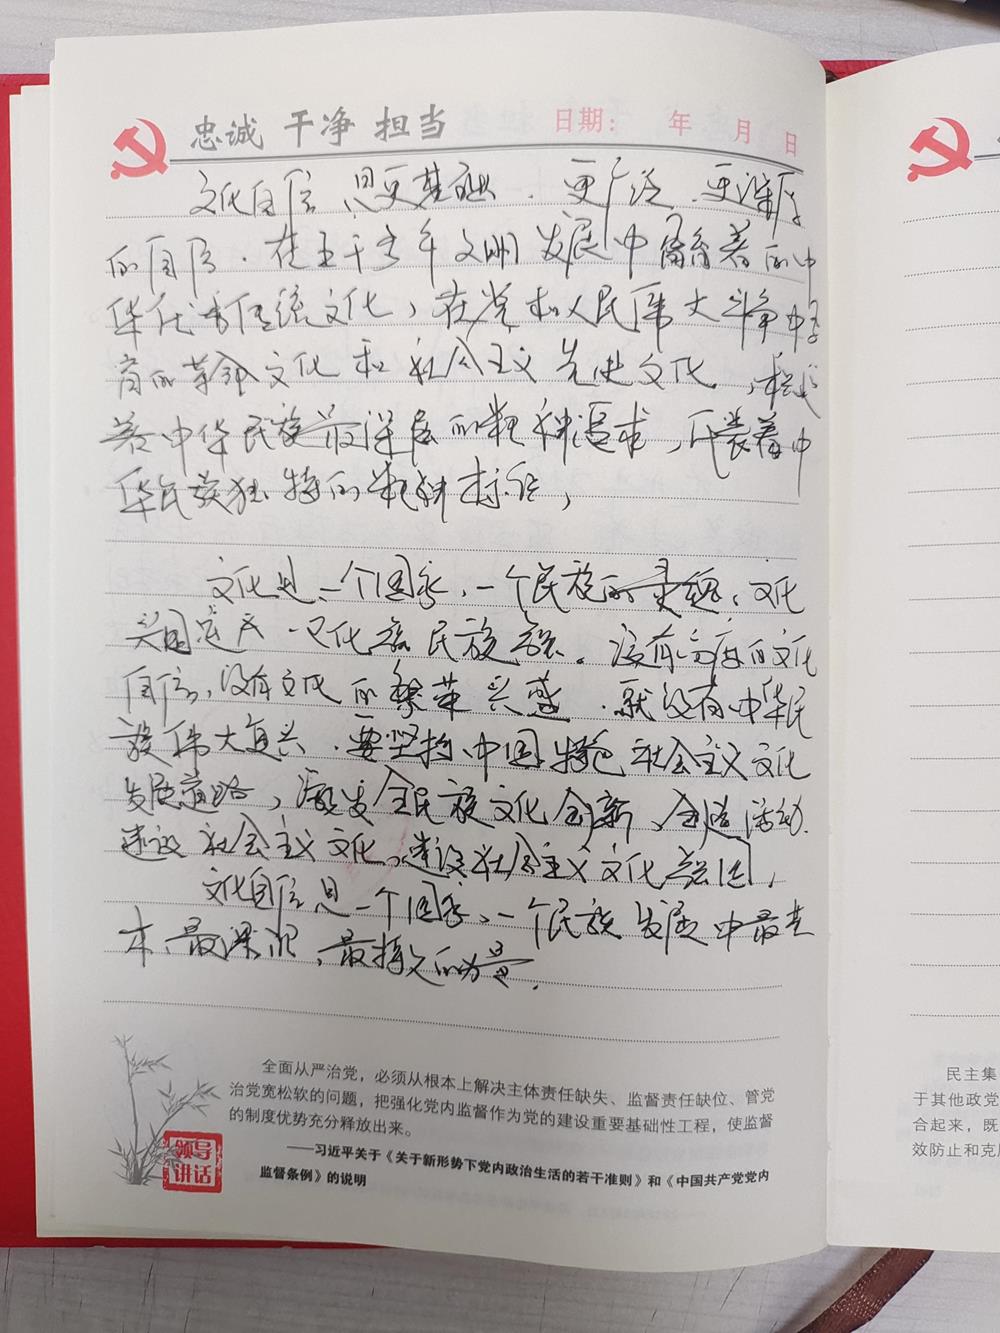 忠诚 干净 担当 日期： 年 月 日
文化自信是更基础、更广泛、更深厚
的自信。在五千多年文明发展中孕育着的中
华优秀传统文化，在党和人民伟大斗争中孕
育的革命文化和社会主义先进文化，积淀
着中华民族最深层的精神追求，代表着中
华民族独特的精神标识，
文化是一个国家、一个民族的灵魂。文化
兴国运兴 文化强民族强。没有高度的文化
自信，没有文化的繁荣兴盛，就没有中华民
族伟大复兴。要坚持中国特色社会主义文化
发展道路，激发全民族文化创新、创造活动.
建设社会主义文化，建设社会主义文化强国，
文化自信是一个国家、一个民族发展中最基
本、最深沉、最持久的力量.
全面从严治党，必须从根本上解决主体责任缺失、监督责任缺位、管党
治党宽松软的问题，把强化党内监督作为党的建设重要基础性工程，使监督
的制度优势充分释放出来。
——习近平关于《关于新形势下党内政治生活的若干准则》和《中国共产党党内
监督条例》的说明
领导
讲话
民主集
于其他政党
合起来，既
效防止和克